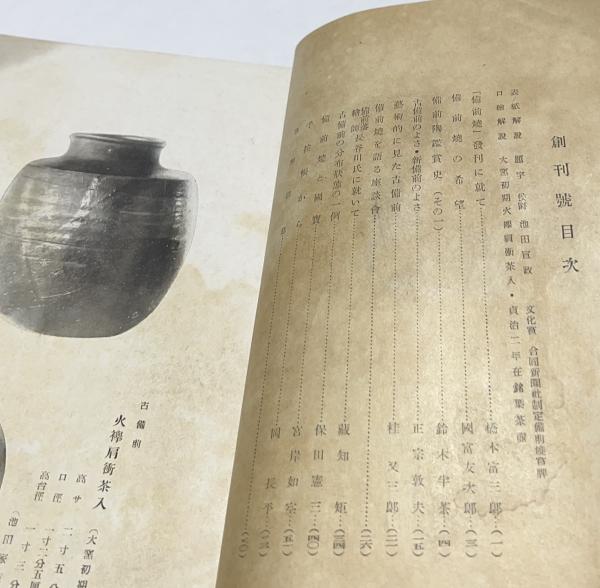 創刊號目次
表紙解説 題字 侯爵 池田宣政 文化賞 合同新聞社制定備前燒賞牌
口繪解説 大窯初期火襷肩衝茶入・貞治二年在銘葉茶壺
「備前燒」發刊に就て……橋本富三郎…(一)
備前燒の希望……國富友次郎…(三)
備前陶鑑賞史(その一)……鈴木半茶…(四)
古備前のよさ・新備前のよさ……正宗敦夫…(一五)
藝術的に見た古備前……桂又三郎…(二一)
備前燒を語る座談會……(二六)
備前藩繪師長谷川氏に就いて……藏知矩…(三四)
古備前の分布狀態の一例……保田憲三…(四〇)
備前燒と國寶……宮岸如宗…(五一)
手控帳から……岡長平…(六三)
(七〇)
古備前
火襷肩衝茶入
(大窯初期
高サ 二寸五
口徑 一寸二分五厘
高台徑 一寸三分
(池田家